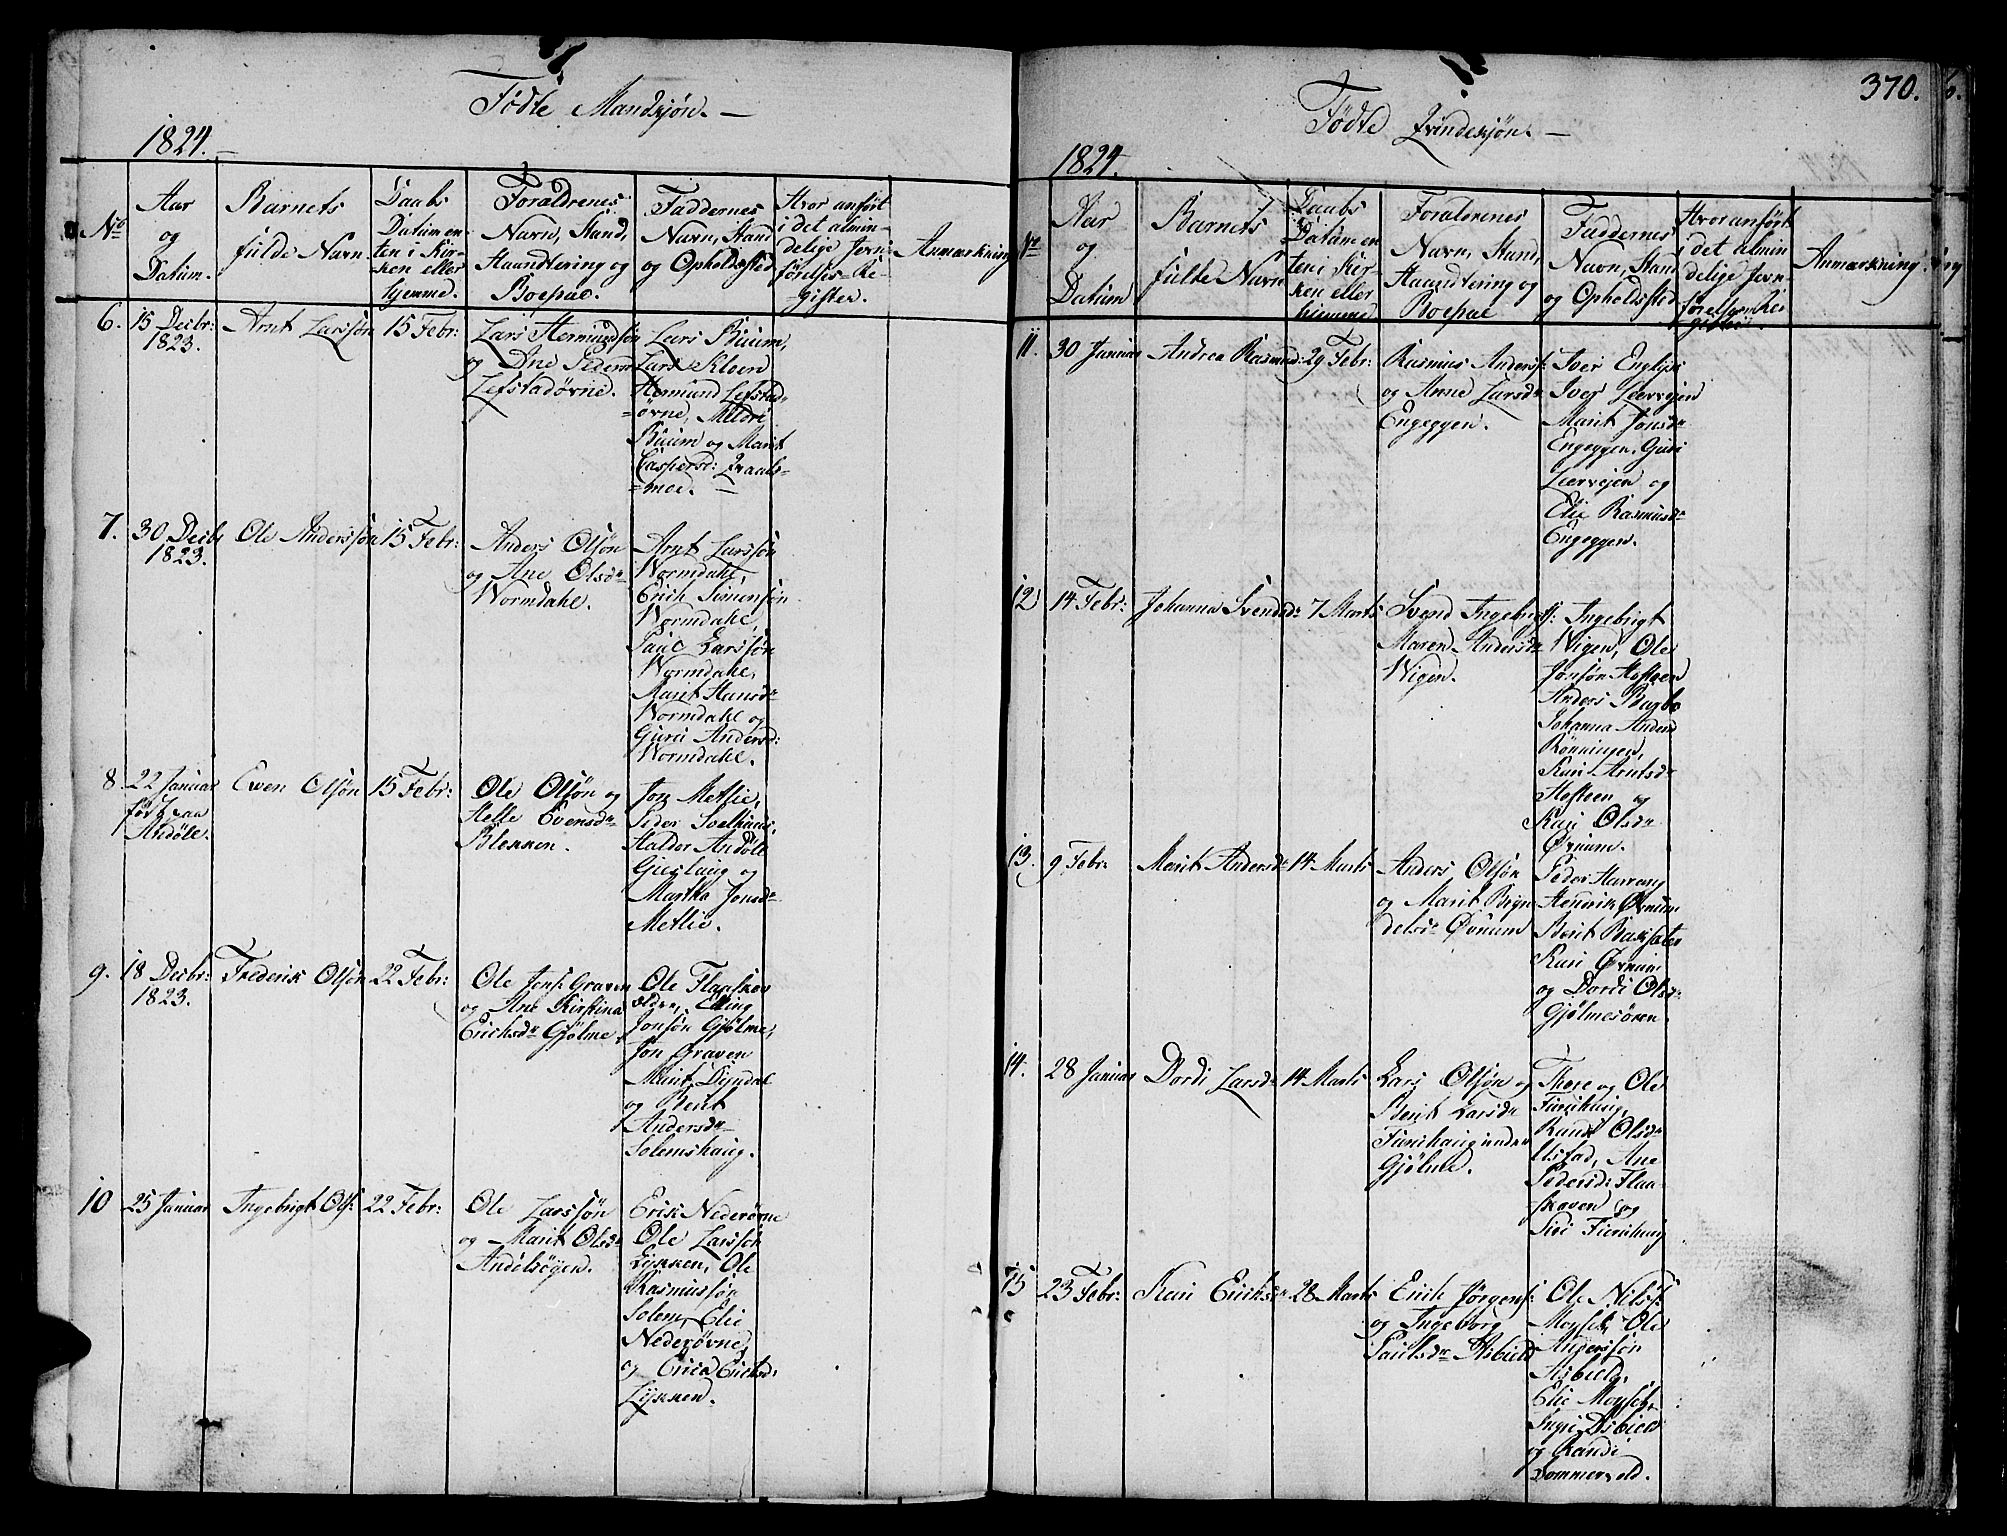 Födte Mandkjön.
1824.
No
Aar
og
Datum.
Barnets
fulde Navn.
Daabs
Datum en
ten i Kir-
ken eller
hjemme.
Foraldrenes
Navn, Stand,
Haandtering og
Boepæl.
Faddernes
Navn, Stand
og Opholdssted
Hvor anfört
i det almin-
delige Jevn-
förelses-Re-
gister.
Anmærkning
6. 15 Decbr:
1823.
Arnt Larssön
15 Febr:
Lars Hermundsön
og Ane Peders
Lefstadörne.
Lars Buum,
Lars Kloen
Hermund Lefstad-
=örne, Meldri
Buum og Marit
Caspersd: Kvaals-
=moe.
7. 30 Decbr
1823.
Ole Anderssön
15 Febr:
Anders Olsön
og Ane Olsdr
Wormdahl.
Arnt Larssön
Wormdahl,
Erich Simensön
Wormdahl,
Paul Larssön
Wormdahl,
Marit Hansdr
Wormdahl og
Guru Andersd:
Wormdahl.
8 22 Januar
Andöle.
Even Olsön
15 Febr:
Ole Olsön og
Helle Evensdr
Blekken.
Jon Metlie,
Peder Soelhuus,
Haldor Andöle
Gieslaug og
Martha Jonsdr
Metlie.
9. 18 Decbr:
1823.
Frederik Olsön
22 Febr:
Ole Jons: Graven
og Ane Kirstina
Erichsdr Gjölme
Ole Flaaskov
olden, Elling
Jonsön Gjölme,
Jon Graven
Marit Dyndal
og Berit
Andersdr
Solemshaug.
10 25 Januar
Ingebrigt Ols:
22 Febr:
Ole Larssön
og Marit Olsdr
Andölsöyen.
Erik Nederörne
Ole Larssön
Lykken, Ole
Rasmussön
Solem, Elie
Nederövne
og Erica Erichsd:
Lykken.
370.
Födte Qvindekjön.
1824.
Nr
Aar
og
Datum
Barnets
fulde Navn
Daabs
Datum en
ten i Kir-
ken eller
hiemme
Foraldrenes
Navn, Stand,
Haandtering og
Boepæl
Faddernes
Navn, Stand
og Opholdssted
Hvor anfört
i det almin
delige Jevn-
förelses Re
gister
Anmærkning.
11. 30 Januar
Andrea Rasmusd:
29 Febr:
Rasmus Anders:
og Anne Larsdr
Engeggen.
Iver Englys
Iver Leervejen
Marit Jonsdr
Engeggen, Guri
Leervejen og
Elie Rasmusdr
Engeggen.
12 14 Febr:
Johanna Svendsdr
7 Marts
Svend Ingebrigts:
Maren Andersdr
Wigen.
Ingebrigt
Wigen, Ole
Jonsön Hofteen
Anders Bugbo
Johanna Andersd
Rönningen,
Kari Arntsdr
Hofteen og
Kari Olsdr
Övnum.
13. 9 Febr:
Marit Andersdr
14 Marts
Anders Olsön
og Marit Bryn
delsdr Övnum
Peder Harrang
Hendrik Övnum
Berit Baksæter
Kari Övnum
og Dordi Olsdr
Gjölmesören.
14. 28 Januar
Dordi Larsdr
14 Marts
Lars Olsön og
Berit Larsdr
Furuhaug under
Gjölme.
There og Ole
Furuhaug,
Randi Olsdr
Ustad, Ane
Pedersd: Flaa-
skoven og
Siri Furuhaug
15 23 Febr:
Kari Erichsdr
28 Marts
Erich Jörgens:
og Ingeborg
Paulsdr Asbiels
Ole Nilss:
Moysel, Ole
Anderssön
Asbield,
Elie Moysel,
Ingri Asbield
og Randi
Sommervold.